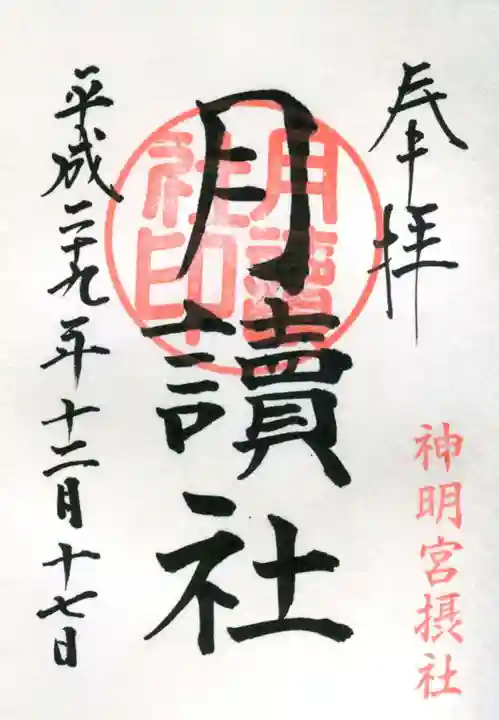 奉拝
神明宮摂社
月讀社
月讀社印
平成二十九年十二月十七日